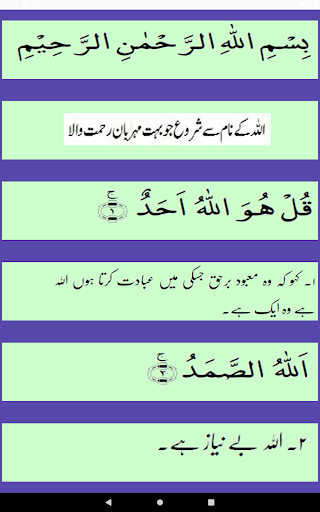 بِسْمِ اللهِ الرَّحْمٰنِ الرَّحِيْمِ
اللہ کے نام سے شروع جو بہت مہربان رحمت والا
قُلْ هُوَ اللهُ اَحَدٌ ۚ ﴿۱﴾
۱۔ کہو کہ وہ معبود برحق جسکی میں عبادت کرتا ہوں اللہ
ہے وہ ایک ہے۔
اَللهُ الصَّمَدُ ۚ ﴿۲﴾
۲۔ اللہ بے نیاز ہے۔